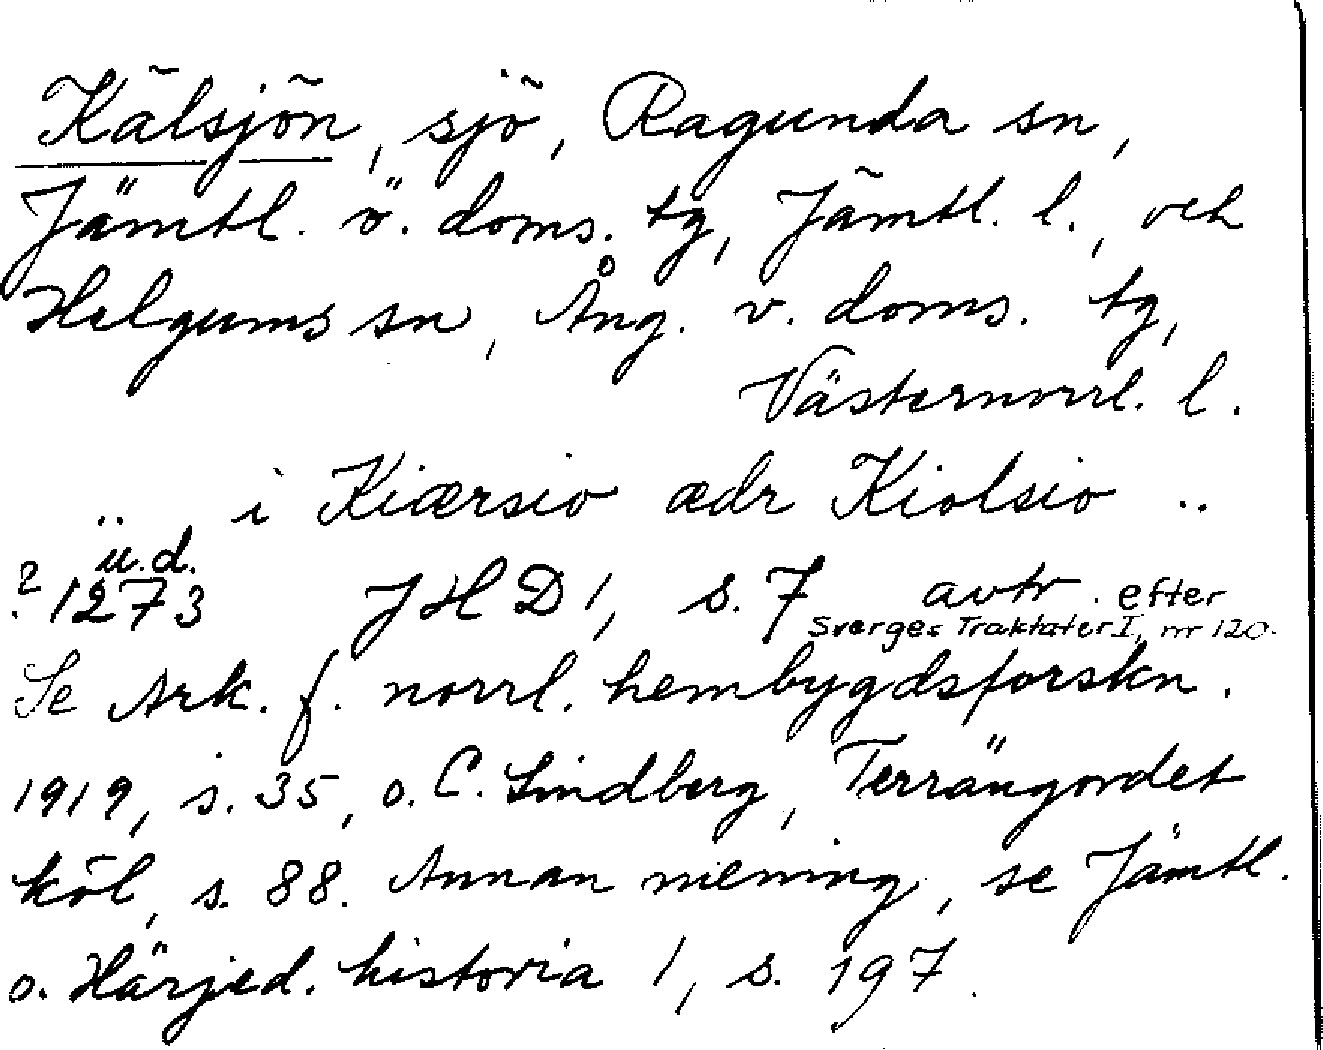 Kälsjön, sjö, Ragunda sn,
Jämtl. ö. doms. tg, Jämtl. l., och
Helgums sn, Ång. v. doms. tg,
Västernorrl. l.
.. i Kiærsio ædr Kiolsio ..
u.d.
? 1273 JHD 1, s. 7 avtr. efter
Sverges Traktater I, nr 120.
Se Ark. f. norrl. hembygdsforskn.
1919, s. 35, o. C. Lindberg, Terrängordet
köl, s. 88. Annan mening, se Jämtl.
o. Härjed. historia 1, s. 197.